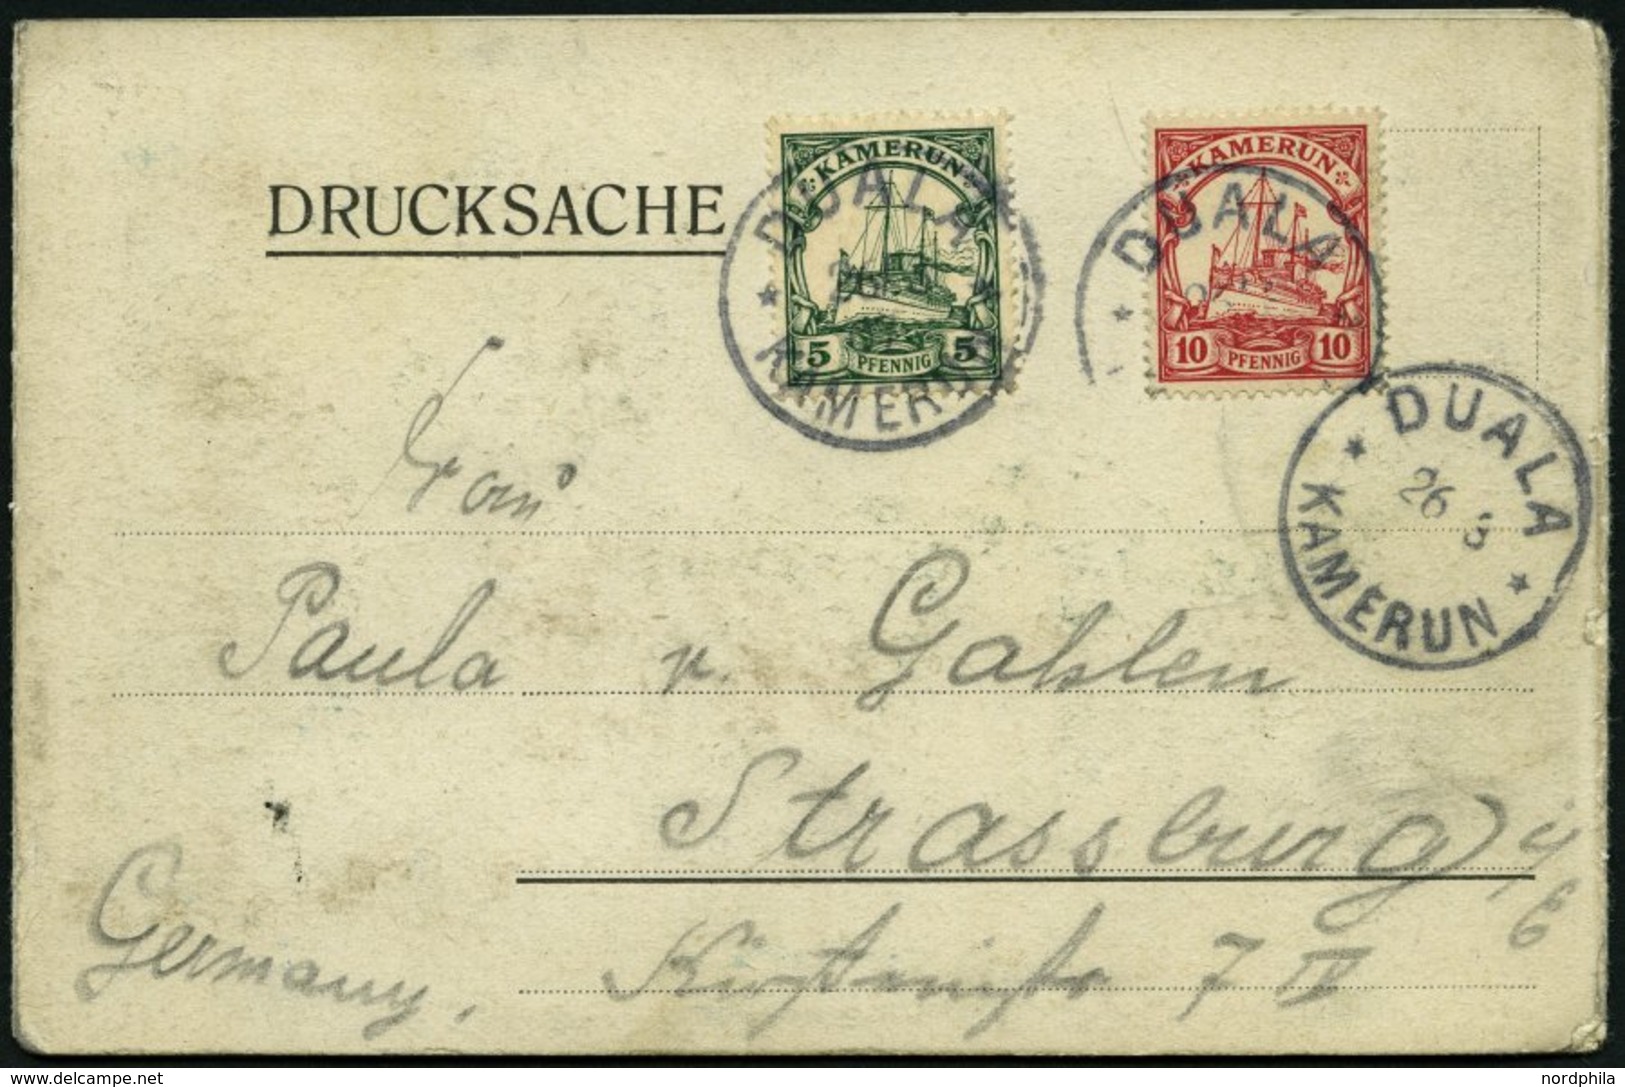 DRUCKSACHE
KAMERUN
5 PFENNIG 5
KAMERUN
10 PFENNIG 10
DUALA
KAMERUN
DUALA
DUALA
26 3
KAMERUN
Frau
Paula v. Gahlen
Strassburg i/E
7 IV
Germany.
© nordphila
nordphila